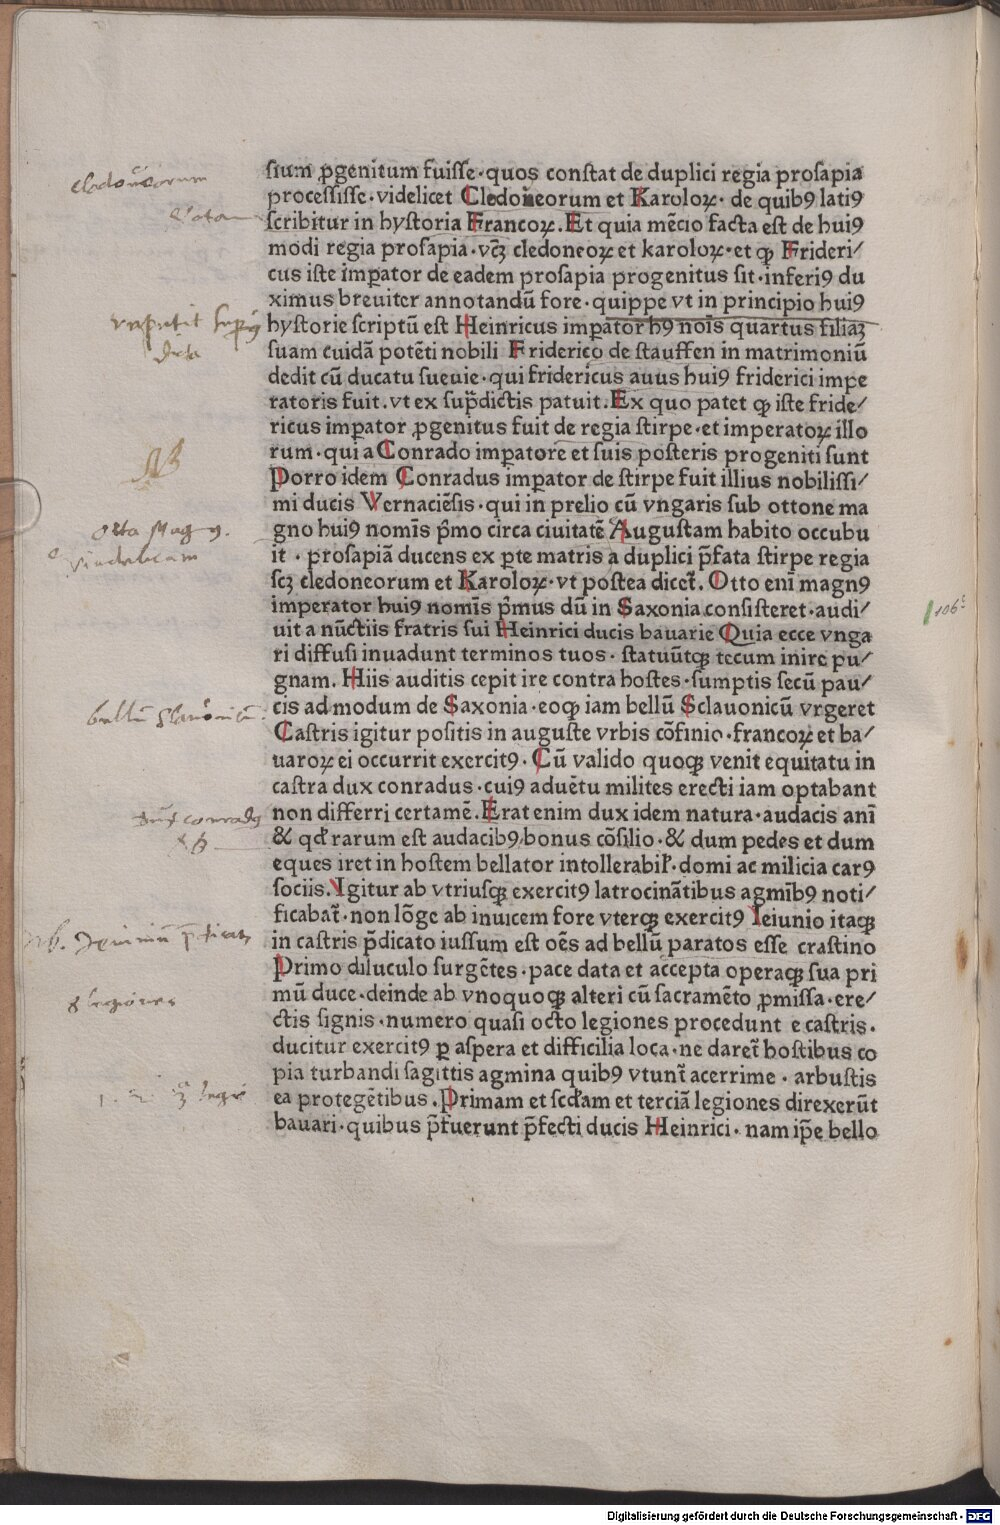 sium ꝓgenitum fuisse·quos constat de duplici regia prosapia
processisse·videlicet Cledoneorum et Karoloꝝ· de quibꝰ latiꝰ
scribitur in hystoria Francoꝝ. Et quia mẽcio facta est de huiꝰ
modi regia prosapia·vcꝫ cledoneoꝝ et karoloꝝ·et ꝙ Frideri/
cus iste imꝑator de eadem prosapia progenitus sit·inferiꝰ du
ximus breuiter annotandũ fore·quippe vt in principio huiꝰ
hystorie scriptũ est Heinricus imꝑator hꝰ noĩs quartus filiaꝫ
suam cuidã potẽti nobili Friderico de stauffen in matrimoniũ
dedit cũ ducatu sueuie·qui fridericus auus huiꝰ friderici impe
ratoris fuit.vt ex sup̃dictis patuit.Ex quo patet ꝙ iste fride/
ricus imꝑator ꝓgenitus fuit de regia stirpe·et imperatoꝝ illo
rum·qui a Conrado imꝑatore et suis posteris progeniti sunt
Porro idem Conradus imꝑator de stirpe fuit illius nobilissi/
mi ducis Vernaciẽsis·qui in prelio cũ vngaris sub ottone ma
gno huiꝰ nomĩs p̃mo circa ciuitatẽ Augustam habito occubu
it · prosapiã ducens ex ꝑte matris a duplici p̃fata stirpe regia
scꝫ cledoneorum et Karoloꝝ·vt postea dicet̃. Otto enĩ magnꝰ
imperator huiꝰ nomĩs p̃mus dũ in Saxonia consisteret·audi/
uit a nũctiis fratris sui Heinrici ducis bauarie Quia ecce vnga
ri diffusi inuadunt terminos tuos· statuũtqꝫ tecum inire pu/
gnam. Hiis auditis cepit ire contra hostes·sumptis secũ pau/
cis admodum de Saxonia·eoqꝫ iam bellũ Sclauonicũ vrgeret
Castris igitur positis in auguste vrbis cõfinio·francoꝝ et ba/
uaroꝝ ei occurrit exercitꝰ· Cũ valido quoqꝫ venit equitatu in
castra dux conradus·cuiꝰ aduẽtu milites erecti iam optabant
non differri certamẽ. Erat enim dux idem natura·audacis anĩ
& qđ rarum est audacibꝰ bonus cõsilio·& dum pedes et dum
eques iret in hostem bellator intollerabil̃·domi ac milicia carꝰ
sociis.Igitur ab vtriusqꝫ exercitꝰ latrocinãtibus agmĩbꝰ noti/
ficabat̃·non lõge ab inuicem fore vterqꝫ exercitꝰ Ieiunio itaqꝫ
in castris p̃dicato iussum est oẽs ad bellũ paratos esse crastino
Primo diluculo surgẽtes·pace data et accepta operaqꝫ sua pri
mũ duce·deinde ab vnoquoqꝫ alteri cũ sacramẽto ꝓmissa·ere/
ctis signis·numero quasi octo legiones procedunt e castris.
ducitur exercitꝰ ꝑ aspera et difficilia loca·ne daret̃ hostibus co
pia turbandi sagittis agmina quibꝰ vtunt̃ acerrime · arbustis
ea protegẽtibus.Primam et scđam et terciã legiones direxerũt
bauari·quibus p̃fuerunt p̃fecti ducis Heinrici·nam ip̃e bello
Otto Magnꝰ.
Digitalisierung gefördert durch die Deutsche Forschungsgemeinschaft - DFG